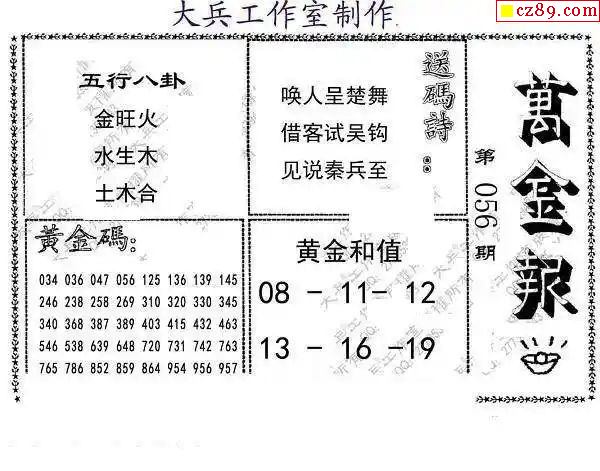 大兵工作室制作
cz89.com
五行八卦
金旺火
水生木
土木合
送碼詩：
唤人呈楚舞
借客试吴钩
见说秦兵至
萬金报
第056期
黄金碼：
034 036 047 056 125 136 139 145
246 238 258 269 310 320 330 345
340 368 387 389 403 415 432 463
546 538 639 648 720 731 742 763
765 786 852 859 864 954 956 957
黄金和值
08 - 11- 12
13 - 16 -19